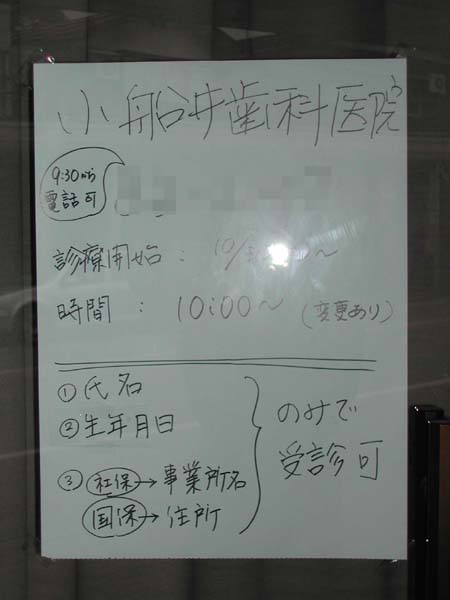 小船井歯科医院
9:30から
電話可
診療開始: 10/
時間: 10:00〜 (変更あり)
①氏名
②生年月日
③社保→事業所名
国保→住所
のみで
受診可